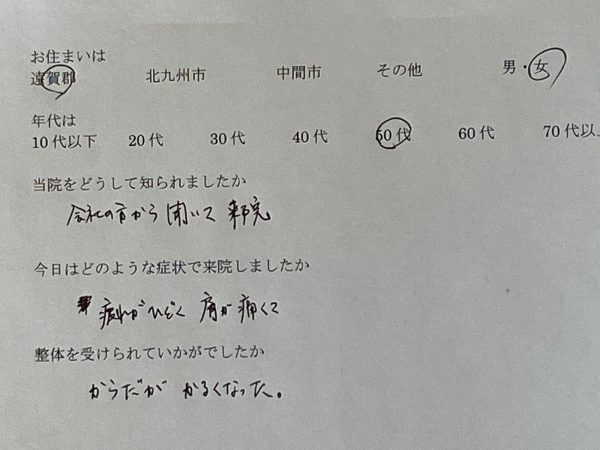 お住まいは
遠賀郡 北九州市 中間市 その他 男・女
年代は
10代以下 20代 30代 40代 50代 60代 70代以上
当院をどうして知られましたか
会社の方から聞いて来院
今日はどのような症状で来院しましたか
疲れがひどく 肩が痛くて
整体を受けられていかがでしたか
からだが かるくなった。